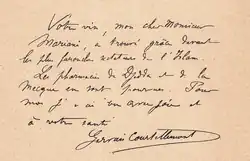 Votre vin, mon cher Monsieur
Mariani, a trouvé grâce devant
les plus farouches sectateurs de l'Islam.
Les pharmacies de Djedda et de la
Mecque en sont pourvues. Pour
moi j'ai bu avec joie et
à votre santé
Gervais Courtellemont